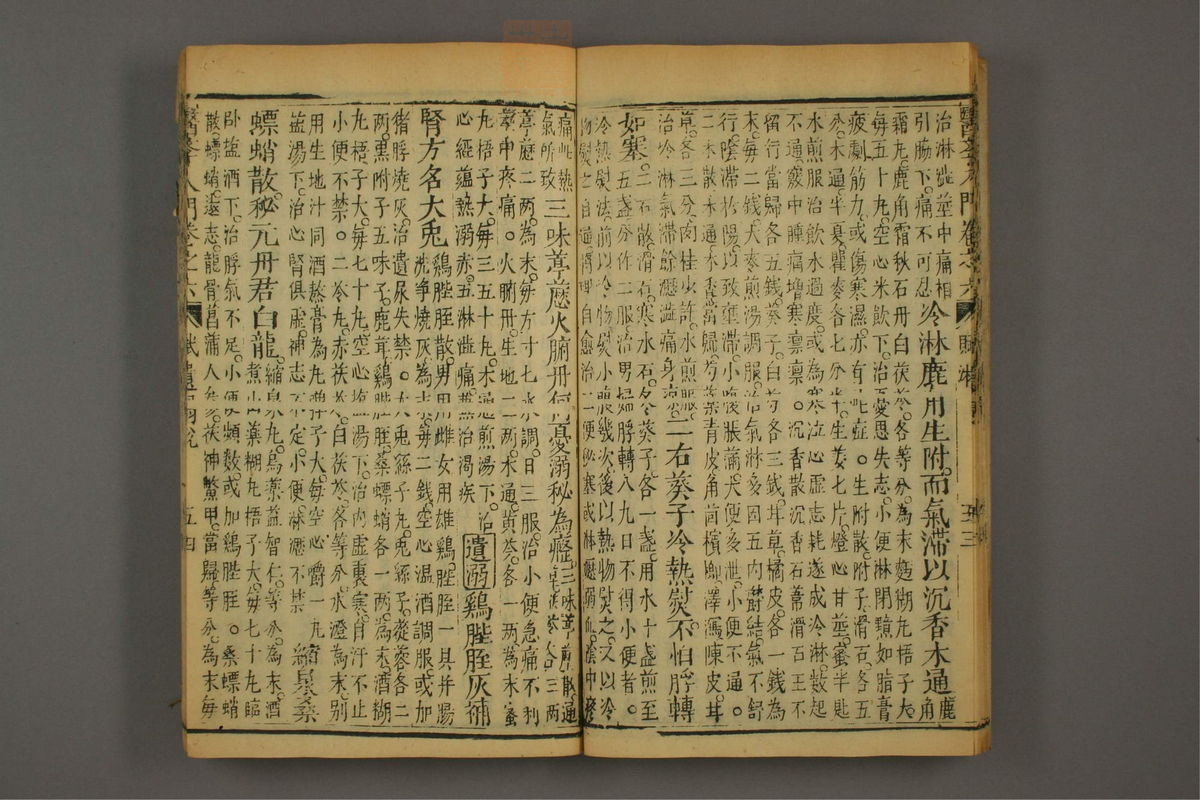 醫學入門卷之六　賦　五三
治淋莖中痛相
引脇下痛不可忍
冷淋鹿用生附而氣滯以沉香木通
鹿角
霜丸鹿角霜秋石丹白茯苓各等分為末麵糊丸梧子大
每五十丸空心米飲下治憂思失志小便淋閉黯如脂膏
疲劇筋力或傷寒濕亦有此症。生附散附子滑石各五
分木通半夏瞿麥各七分半生姜七片燈心甘莖蜜半匙
水煎服治飲水過度或為寒泣心虛志耗遂成冷淋數起
不通竅中腫痛增寒凛凛。沉香散沉香石葦滑石王不
留行當歸各五錢葵子白芍各三錢甘草橘皮各一錢為
末每二錢大麥煎湯調服治氣淋多因五內鬱結氣不舒
行陰滯於陽以致壅滯小腹脹滿大便多泄小便不通。
二木散木通木香當歸芍藥青皮角茴檳榔澤瀉陳皮甘
草各三分肉桂少許水煎服
治冷淋氣滯餘瀝澁痛身凉
二石葵子冷熱熨不怕脬轉
如塞
二石散滑石寒水石冬葵子各一盞用水十盞煎至
五盞分作二服治男婦脬轉八九日不得小便者。
冷熱熨法前以冷物熨小腹幾次後以熱物熨之又以冷
物熨之自通自愈治二便秘塞或淋瀝溺血陰中疼
痛此熱
氣所致
三味葶藶火腑丹何憂溺秘為癃
三味葶藶散通
草茯苓各三兩
葶藶二兩為末每方寸七水調日三服治小便急痛不利
莖中疼痛。火腑丹生地二兩木通黃芩各一兩為末蜜
丸梧子大每三五十丸木通煎湯下治
心經蘊熱溺赤五淋澁痛兼治渴疾
遺溺
鷄䏶胵灰補
腎方名大兎
鷄䏶胵散男用雌女用雄鷄䏶胵一具并腸
洗淨燒灰為末每二錢空心温酒調服或加
猪脬燒灰治遺尿失禁。大兎絲子丸兎絲子蓯蓉各二
兩黒附子五味子鹿茸鷄䏶胵桑螵蛸各一兩為末酒糊
丸梧子大每七十丸空心塩湯下治內虛裏寒自汗不止
小便不禁。二冷丸赤茯苓白茯苓各等分水澄為末別
用生地汁同酒熬膏為丸彈子大每空心嚼一丸
塩湯下治心腎俱虛神志不定小便淋瀝不禁
縮泉桑
螵蛸散秘元丹君白龍
縮泉丸烏藥益智仁等分為末酒
煮山藥糊丸梧子大每七十丸臨
卧塩酒下治脬氣不足小便頻數或加鷄䏶胵。桑螵蛸
散螵蛸遠志龍骨菖蒲人參茯神鱉甲當歸等分為末每
醫學入門卷之六　五四